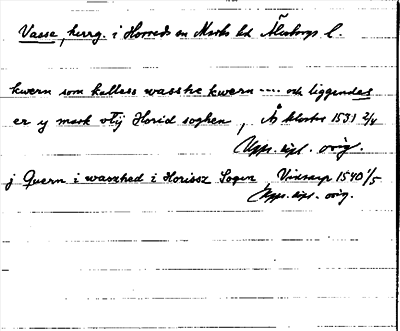 Vasse, herrg. i Horreds sn Marks hd Älvsborgs l.
kwern som kallass wasske kwern .... och liggendes
er y mark vtij Horid soghen, Ås kloster 1531 2/4
Upps. dipl. orig.
j Quern i waszhed i Horissz Sogen, Vinsarp 1540 1/5
Upps. dipl. orig.